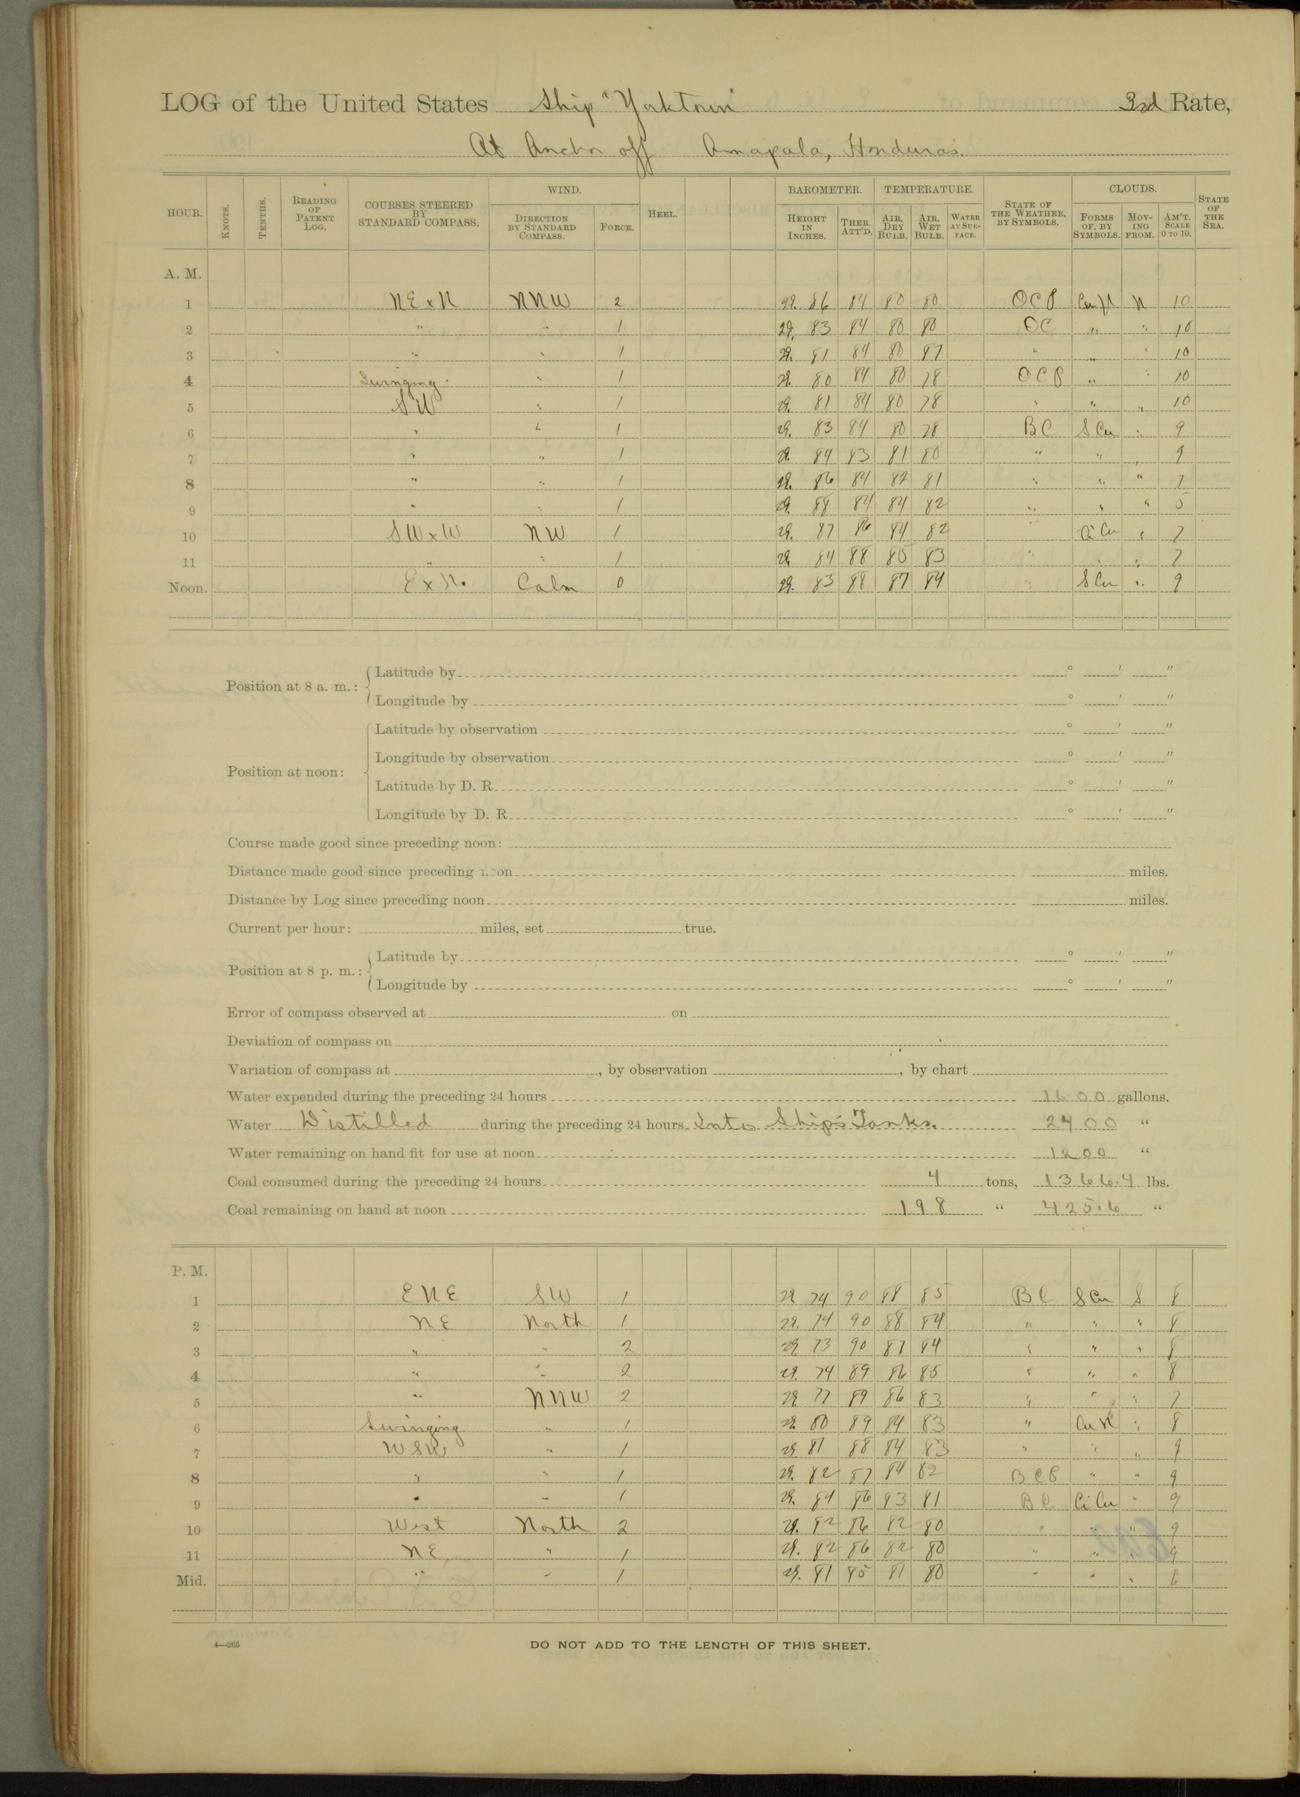 LOG of the United States Ship "Yorktown" 3rd Rate,
At Anchor off Amapala, Honduras.
HOUR. KNOTS. TENTHS. READING OF PATENT LOG. COURSES STEERED BY STANDARD COMPASS. WIND. DIRECTION BY STANDARD COMPASS. FORCE. HEEL. BAROMETER. HEIGHT IN INCHES. THER. ATT'D. TEMPERATURE. AIR, DRY BULB. AIR, WET BULB. WATER AT SURFACE. STATE OF THE WEATHER, BY SYMBOLS. CLOUDS. FORMS OF, BY SYMBOLS. MOVING FROM. AM'T. SCALE 0 TO 10. STATE OF THE SEA.
A. M.
1 NE x N NNW 2 29. 86 84 80 80 OCP CuN N 10
2 " " 1 29. 83 84 80 80 OC " " 10
3 " " 1 29. 81 84 80 " " " 10
4 Swinging " 1 29. 80 84 80 78 OCP " " 10
5 SW " 1 29. 81 84 80 78 " " " 10
6 " " 1 29. 83 84 80 78 BC S Cu " 9
7 " " 1 29. 84 83 81 80 " " " 9
8 " " 1 29. 86 84 82 81 " " " 7
9 " " 1 29. 88 84 84 82 " " " 5
10 SW x W NW 1 29. 87 86 84 82 " Ci Cu " 7
11 " " 1 29. 84 88 85 83 " " " 7
Noon. E x N. Calm 0 29. 83 88 87 84 " S Cu " 9
Position at 8 a. m.: Latitude by ° ' "
Longitude by ° ' "
Position at noon: Latitude by observation ° ' "
Longitude by observation ° ' "
Latitude by D. R. ° ' "
Longitude by D. R. ° ' "
Course made good since preceding noon:
Distance made good since preceding noon miles.
Distance by Log since preceding noon miles.
Current per hour: miles, set true.
Position at 8 p. m.: Latitude by ° ' "
Longitude by ° ' "
Error of compass observed at on
Deviation of compass on
Variation of compass at , by observation , by chart
Water expended during the preceding 24 hours 1600 gallons.
Water Distilled during the preceding 24 hours Into Ship's Tanks. 2400 "
Water remaining on hand fit for use at noon 1200 "
Coal consumed during the preceding 24 hours 4 tons, 1366.4 lbs.
Coal remaining on hand at noon 198 " 425.6 "
P. M.
1 ENE SW 1 29 74 90 88 85 BC S Cu S 8
2 NE North 1 29. 74 90 88 84 " " " 8
3 " " 2 29 73 90 87 84 " " " 8
4 " " 2 29. 74 89 86 85 " " " 8
5 " NNW 2 29 77 89 86 83 " " " 7
6 Swinging " 1 29. 80 89 84 83 " Cu N " 8
7 WSW " 1 29 81 88 84 83 " " " 9
8 " " 1 29. 82 87 84 82 BCP " " 9
9 " " 1 29. 84 86 83 81 BC Ci Cu " 9
10 West North 2 29. 82 86 82 80 " " " 9
11 NE " 1 29. 82 86 82 80 " " " 9
Mid. " " 1 29. 81 85 81 80 " " " 6
4—265
DO NOT ADD TO THE LENGTH OF THIS SHEET.